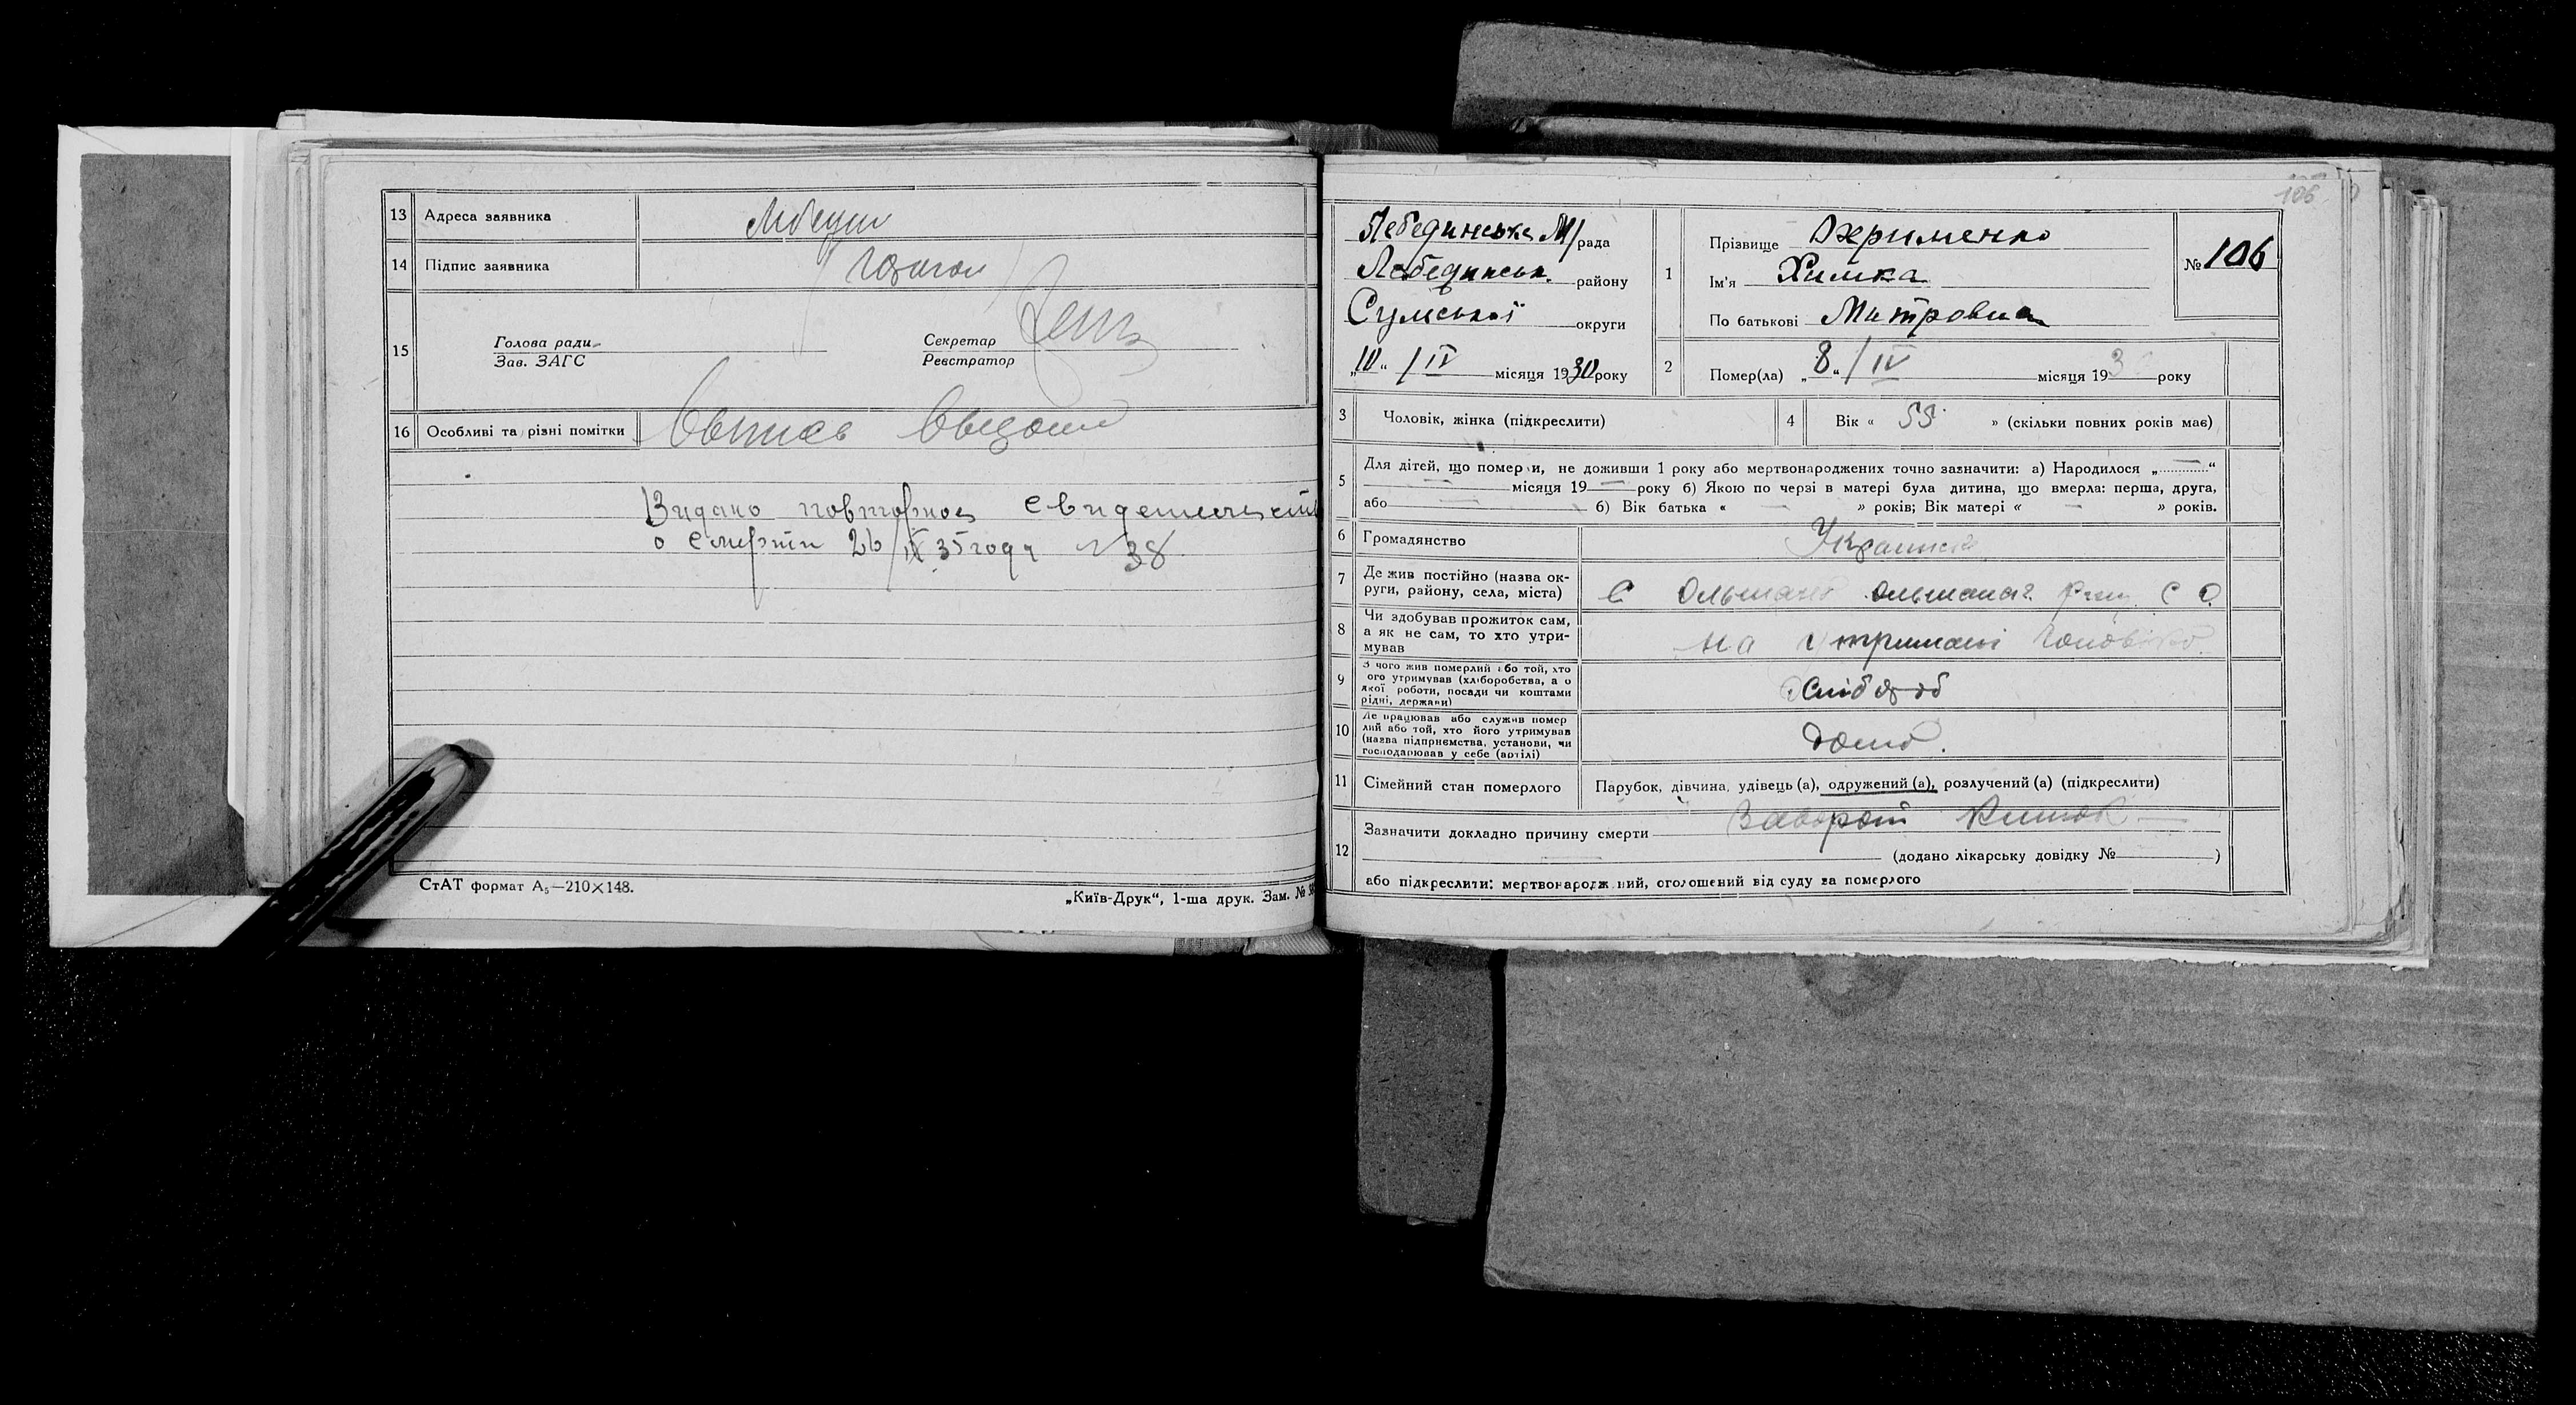 13 Адреса заявника
14 Підпис заявника
15 Голова ради Секретар
Зав. ЗАГС Реєстратор
16 Особливі та різні помітки
Видано повторное свидетельст
о смерти 26/IX 35 года № 38
СтАТ формат А₅—210×148.
„Київ-Друк“, 1-ша друк. Зам. №
106
Лебединська М/рада
Лебединськ. району
Сумської округи
„10“ / IV місяця 1930 року
1 Прізвище Охрименко
Ім'я Химка
По батькові Митровна
№ 106
2 Помер(ла) „8“ / IV місяця 193 року
3 Чоловік, жінка (підкреслити)
4 Вік « 55 » (скільки повних років має)
5 Для дітей, що померли, не доживши 1 року або мертвонароджених точно зазначити: а) Народилося „ — “
— місяця 19 — року б) Якою по черзі в матері була дитина, що вмерла: перша, друга,
або — б) Вік батька « — » років; Вік матері « — » років.
6 Громадянство Украинск
7 Де жив постійно (назва ок-
руги, району, села, міста) С Ольшана Ольшанск. С О.
8 Чи здобував прожиток сам,
а як не сам, то хто утри-
мував на утримані чоловіка
9 З чого жив померлий або той, хто
ого утримував (хліборобства, а о
якої роботи, посади чи коштами
рідні, держави) Хлібороб
10 Де працював або служив помер
лий або той, хто його утримував
(назва підприємства, установи, чи
господарював у себе (артілі) дома.
11 Сімейний стан померлого Парубок, дівчина, удівець (а), одружений (а), розлучений (а) (підкреслити)
12 Зазначити докладно причину смерти Заворот Кишок
(додано лікарську довідку № )
або підкреслити: мертвонароджений, оголошений від суду за померлого